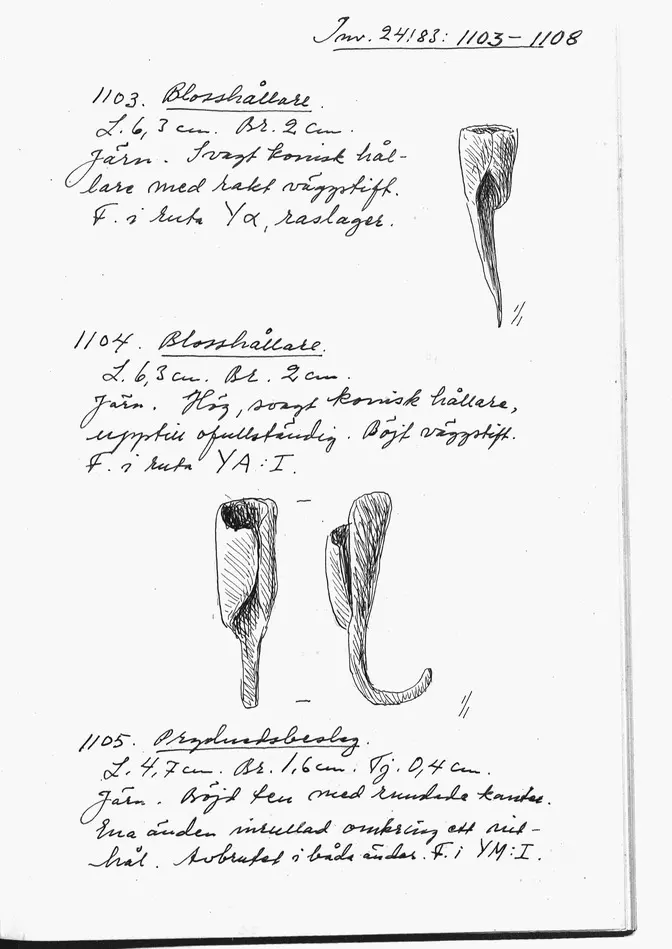 Inv. 24183: 1103-1108
1103. Blosshållare.
L. 6,3 cm. Br. 2 cm.
Järn. Svagt konisk hål-
lare med rakt väggstift.
F. i ruta Yα, raslager.
1/1
1104. Blosshållare.
L. 6,3 cm. Br. 2 cm.
Järn. Hög, svagt konisk hållare,
upptill ofullständig. Böjt väggstift.
F. i ruta YA:I.
1/1
1105. Prydnadsbeslag.
L. 4,7 cm. Br. 1,6 cm. Tj. 0,4 cm.
Järn. Böjd ten med rundade kanter.
Ena änden inrullad omkring ett nit-
hål. Avbrutet i båda ändar. F. i YM:I.